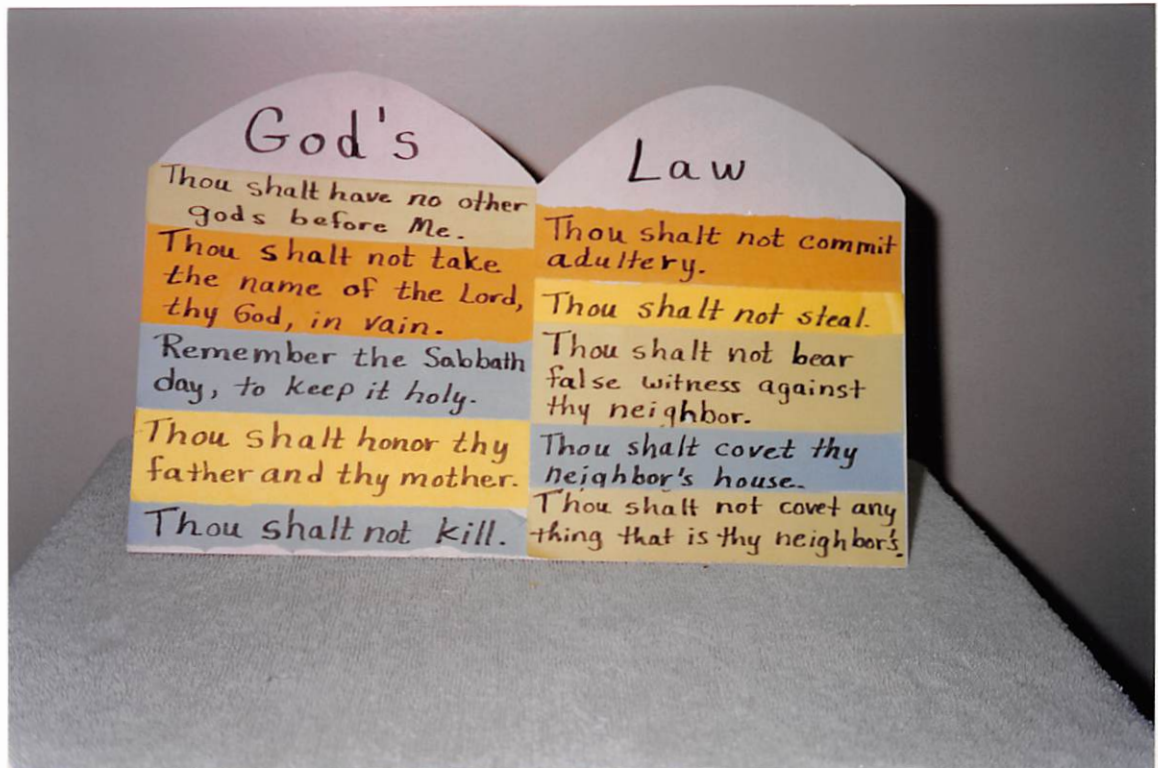 God's
Thou shalt have no other
gods before Me.
Thou shalt not take
the name of the Lord,
thy God, in vain.
Remember the Sabbath
day, to keep it holy.
Thou shalt honor thy
father and thy mother.
Thou shalt not kill.
Law
Thou shalt not commit
adultery.
Thou shalt not steal.
Thou shalt not bear
false witness against
thy neighbor.
Thou shalt covet thy
neighbor's house.
Thou shall not covet any
thing that is thy neighbor's.